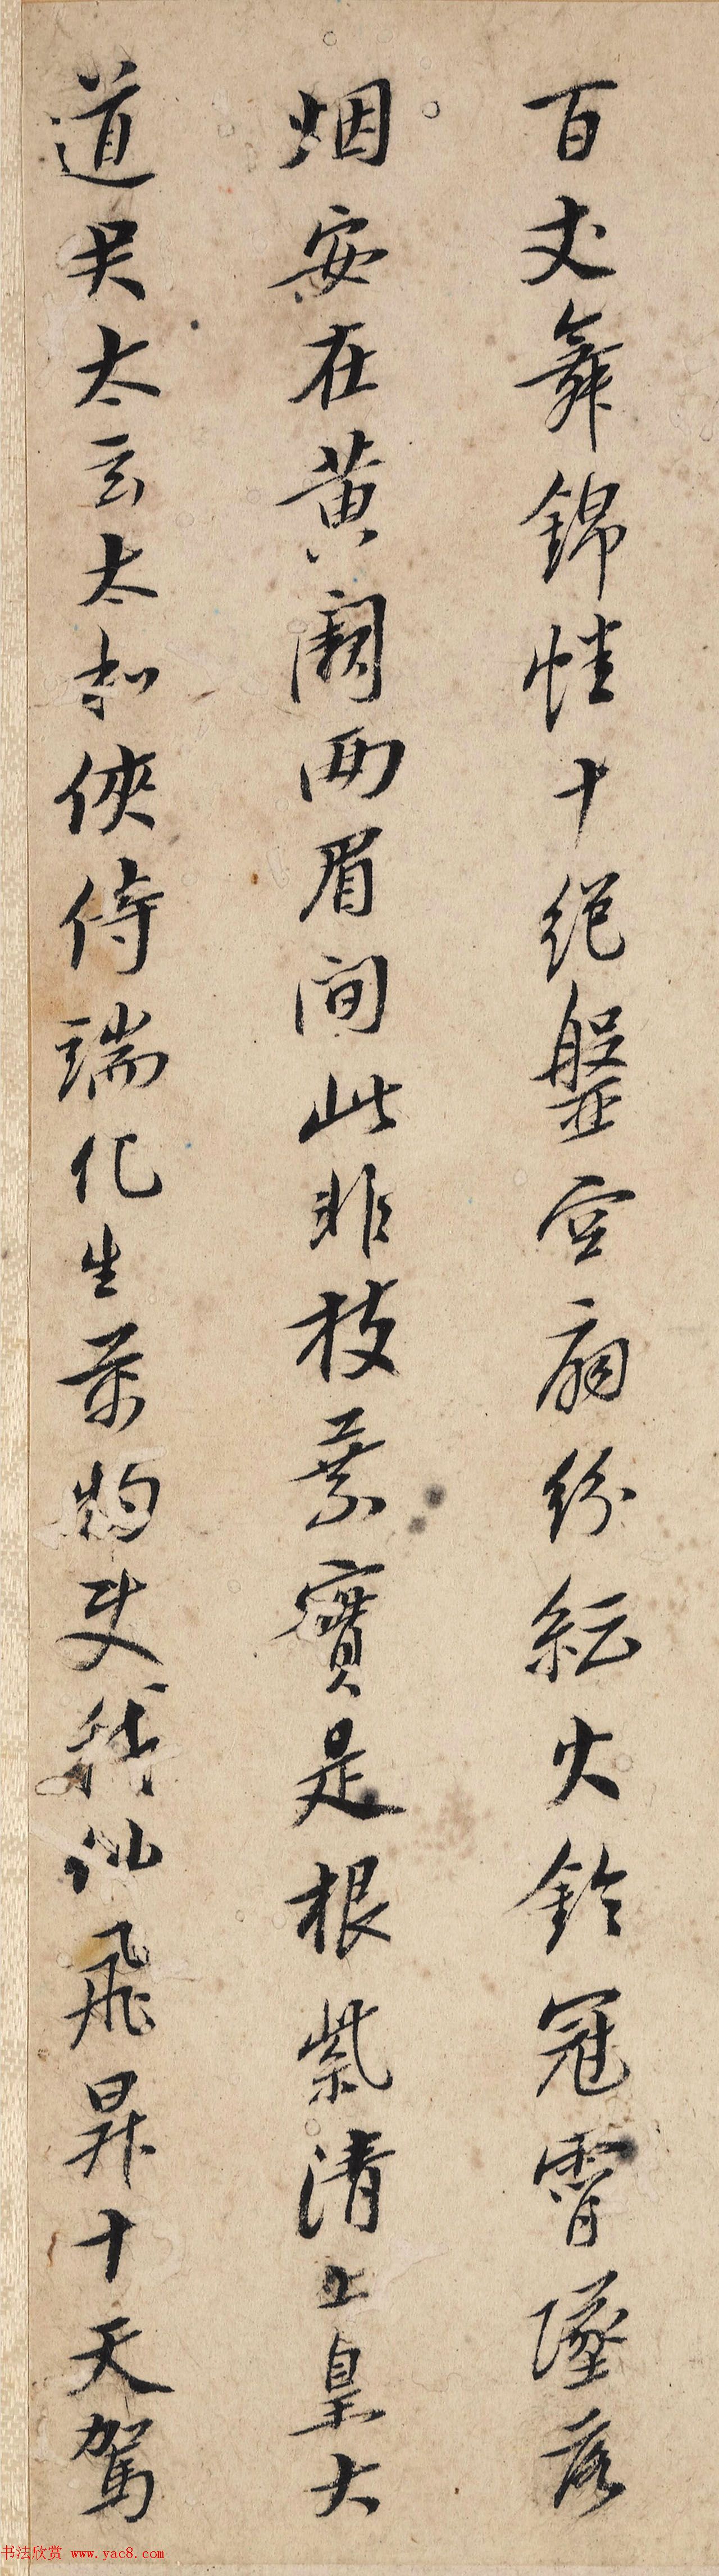 百丈舞錦幢十絕盤空扇紛紜火鈴冠霄墜落
烟安在黄闕兩眉間此非枝葉實是根紫清上皇大
道君太玄太和俠侍端化生萬物使我仙飛昇十天駕
书法欣赏 www.yac8.com